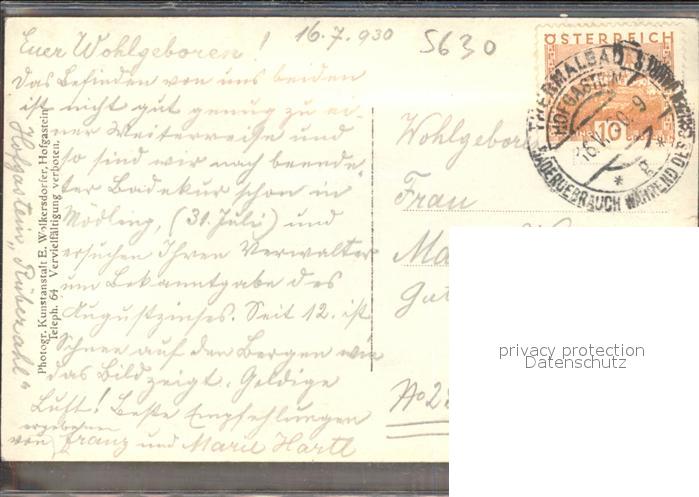 16.7.930
5630
Euer Wohlgeboren!
Das Befinden von uns beiden
ist nicht gut genug zu ei-
ner Weiterreise und
so sind wir nach beende-
ter Badekur schon in
Mödling, (31. Juli) und
ersuchen Ihren Verwalter
um Bekanntgabe des
Augustzinses. Seit 12. ist
Schnee auf den Bergen wie
das Bild zeigt. Goldige
Luft! Beste Empfehlungen
ergebenen
von Franz und Marie Hartl
Hofgastein, "Rübezahl"
Photogr. Kunstanstalt E. Wolkersdorfer, Hofgastein
Teleph. 64 Vervielfältigung verboten.
ÖSTERREICH
10
THERMALBAD
HOFGASTEIN
BADERGEBRAUCH WÄHREND D. GS
Wohlgebore
Frau
Ma
Gu
No 2
privacy protection
Datenschutz